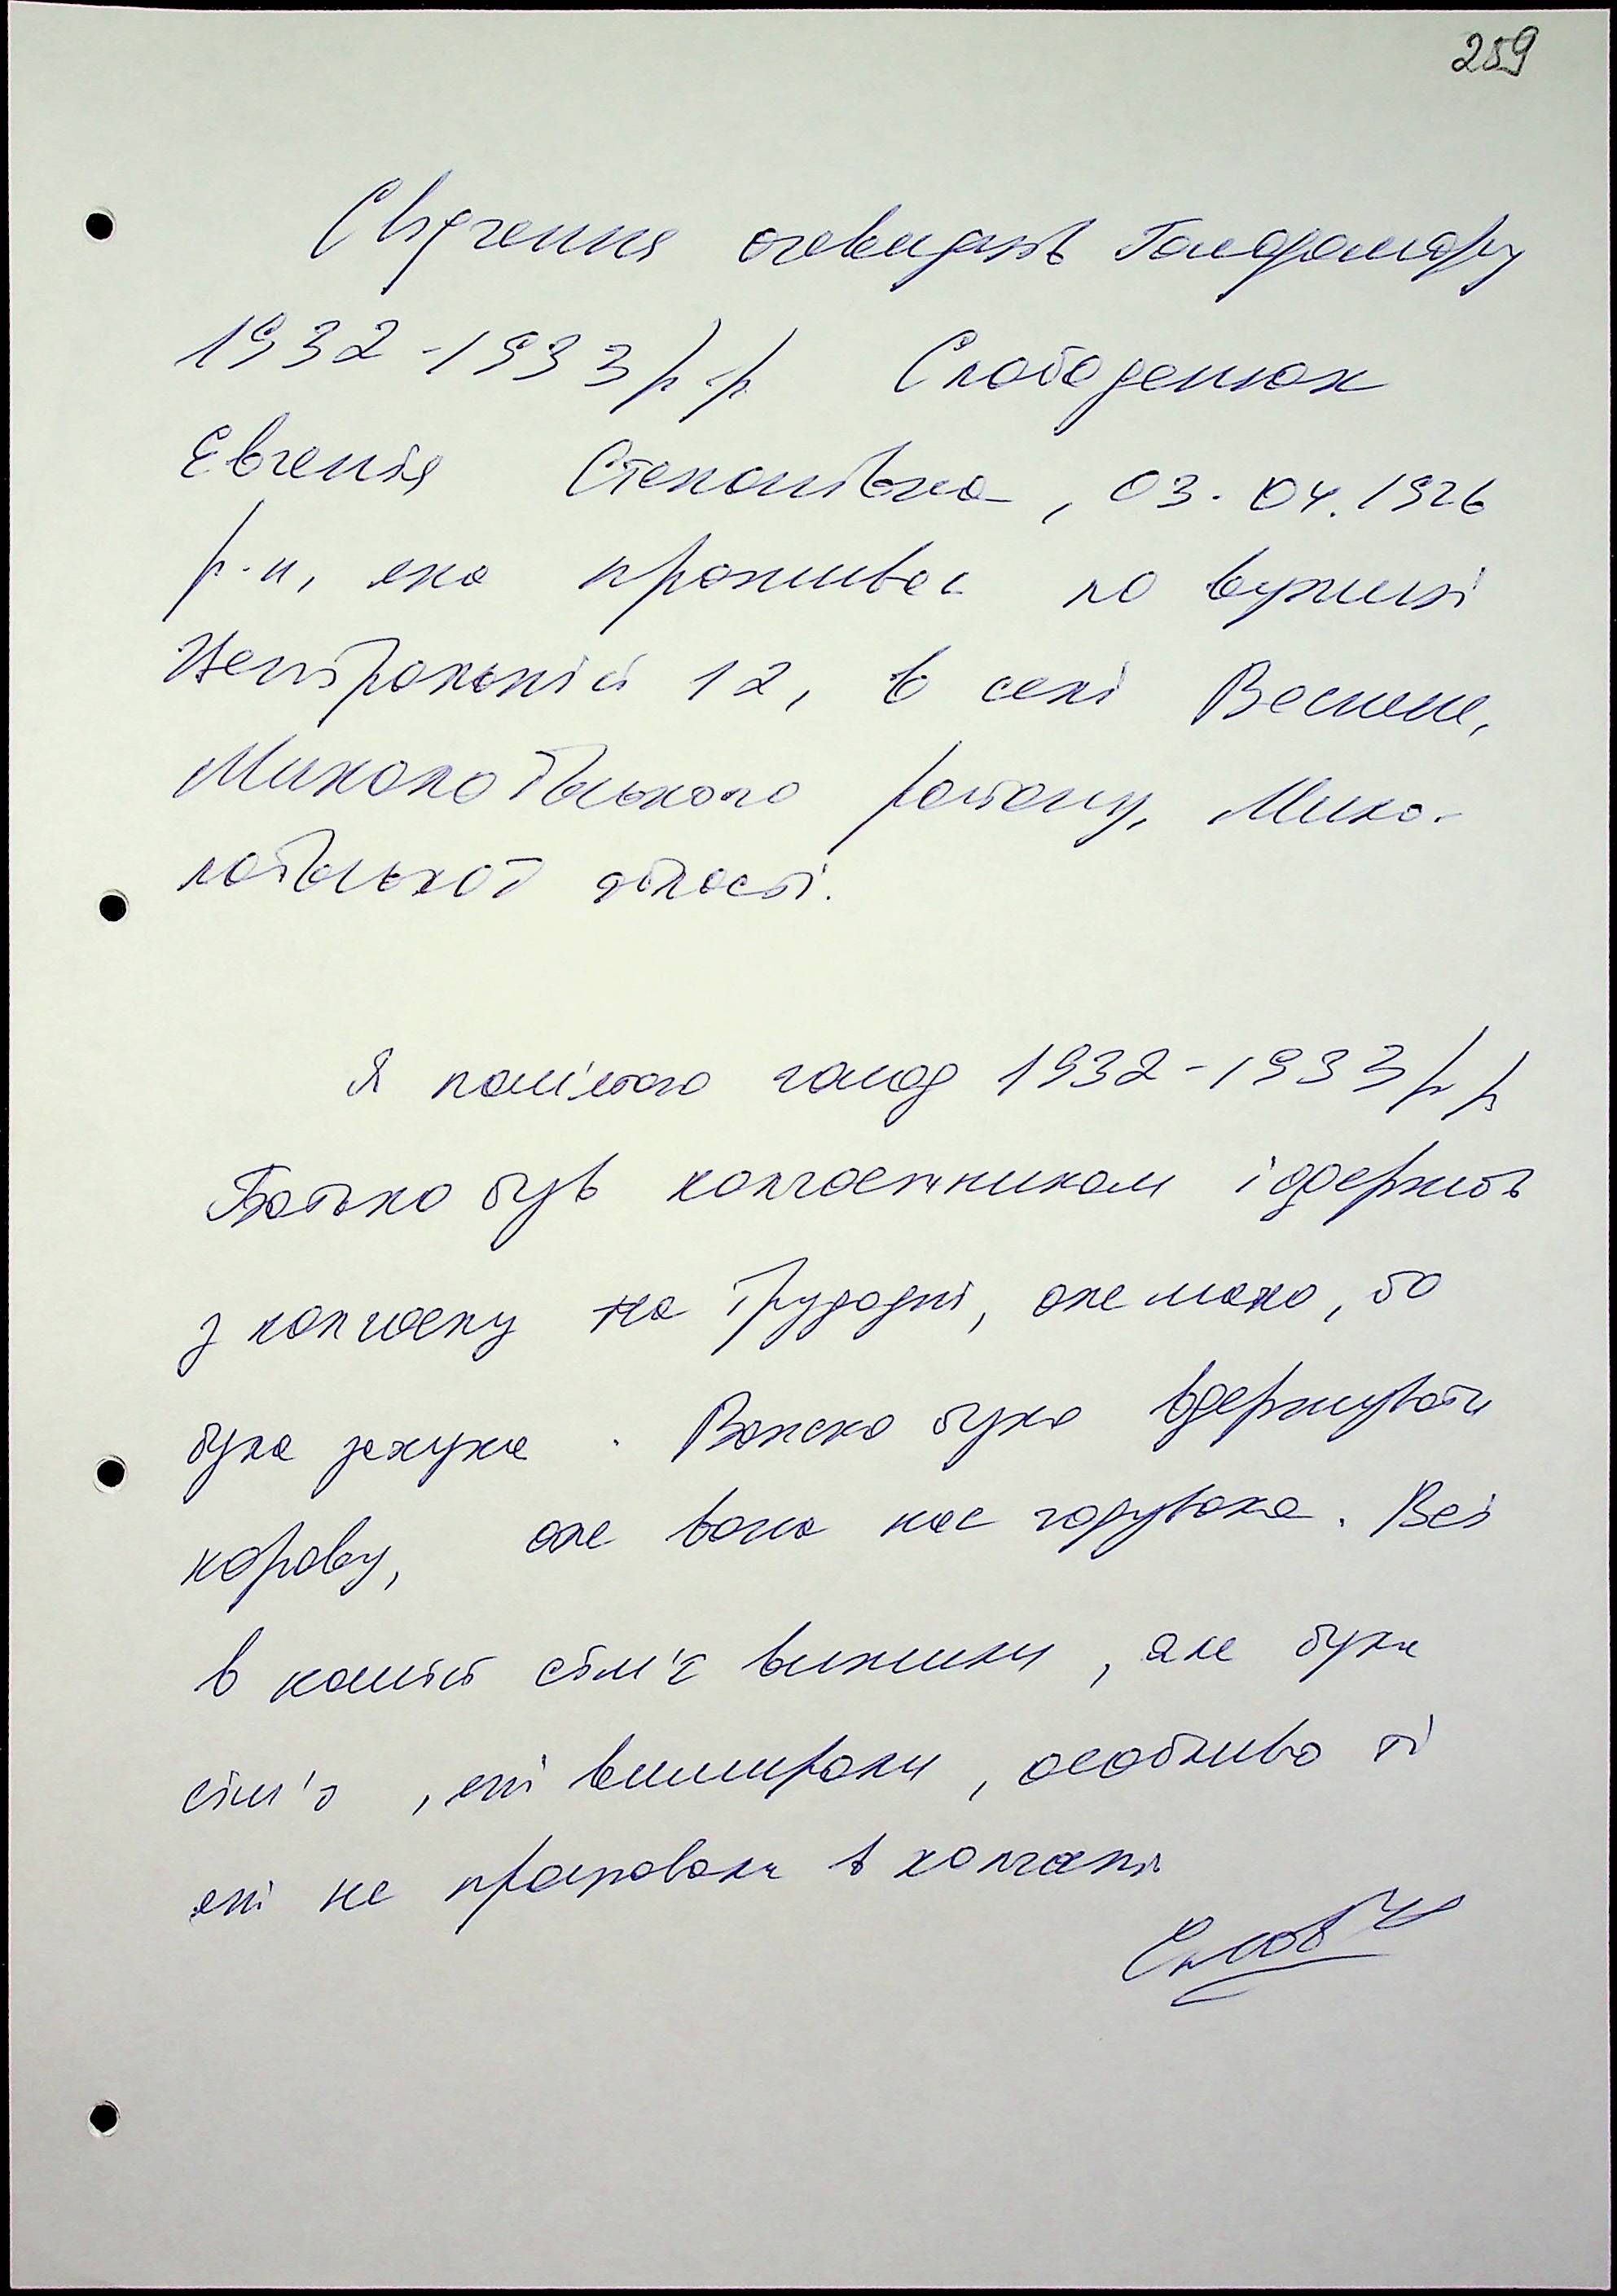 259
Свідчення очевидців Голодомору
1932-1933 р.р Слободенюк
Євгенія Степанівна, 03.04.1926
р.н, яка проживає по вулиці
Центральній 12, в селі Весняне,
Миколаївського району, Мико-
лаївської області.
Я пам'ятаю голод 1932-1933 р р
Батько був колгоспником і держав
з колгоспу на трудодні, але мало, бо
була засуха. Важко було вдержувати
корову, але вона нас годувала. Всі
в нашій сім'ї вижили, але були
сім'ї, які вимирали, особливо ті
які не працювали в колгоспі